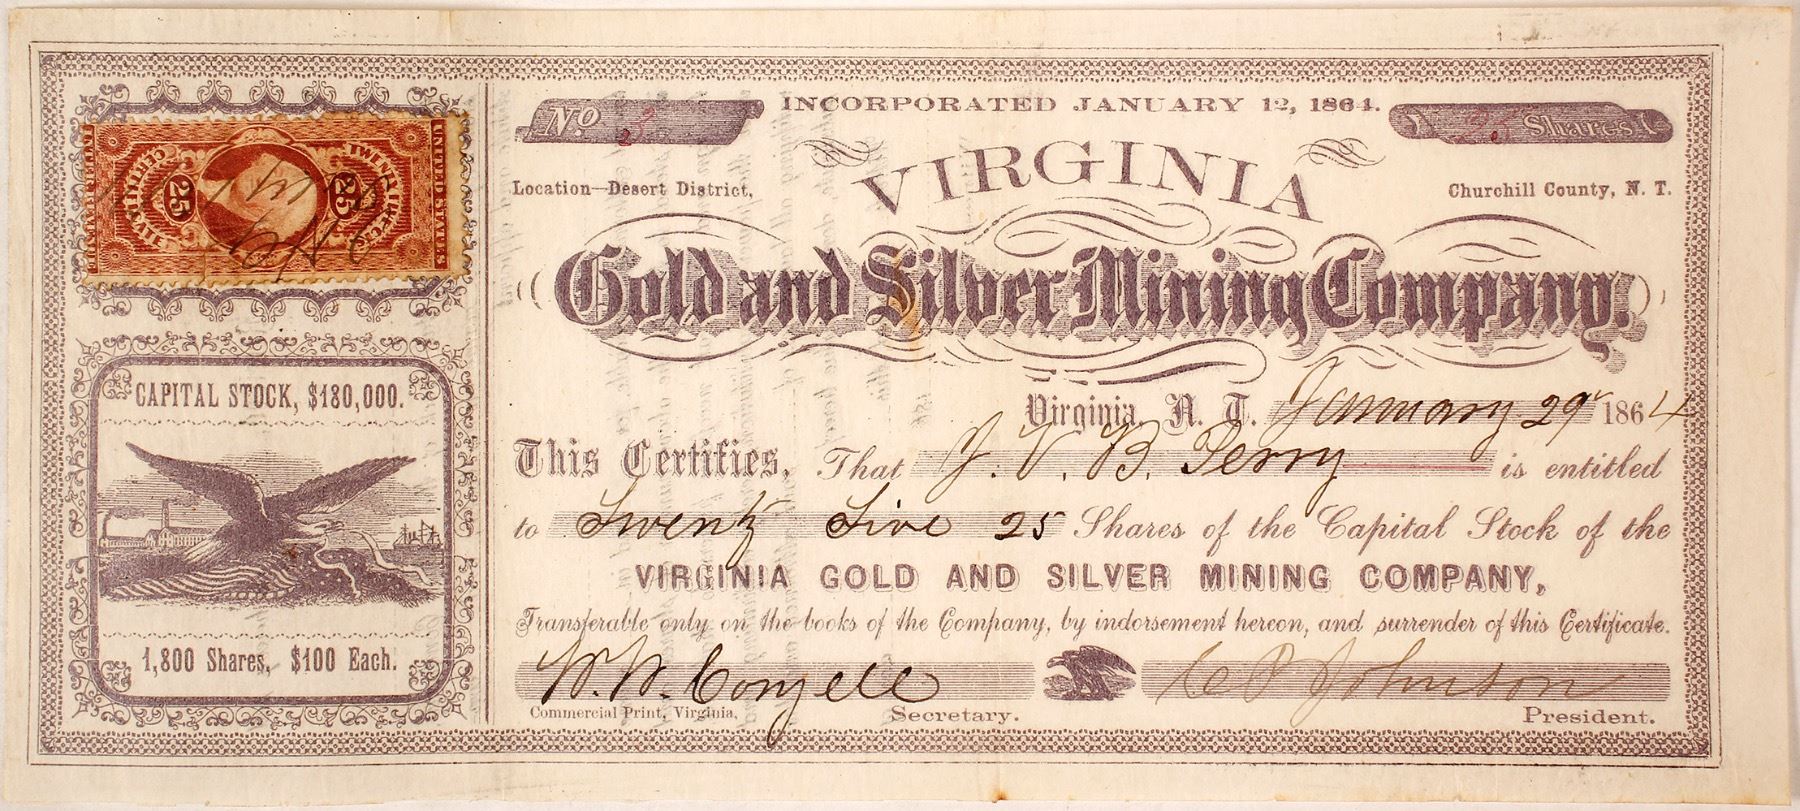 No 3
INCORPORATED JANUARY 12, 1864.
25 Shares
Location—Desert District,
VIRGINIA
Churchill County, N. T.
Gold and Silver Mining Company.
Virginia, N. T. January 29 1864
This Certifies, That J. V. B. Perry is entitled
to Twenty Five 25 Shares of the Capital Stock of the
VIRGINIA GOLD AND SILVER MINING COMPANY,
Transferable only on the books of the Company, by indorsement hereon, and surrender of this Certificate.
Johnson
Commercial Print, Virginia, Secretary. President.
UNITED STATES
25 25
TWENTY FIVE CENTS
INTER. REVENUE
CAPITAL STOCK, $180,000.
1,800 Shares, $100 Each.